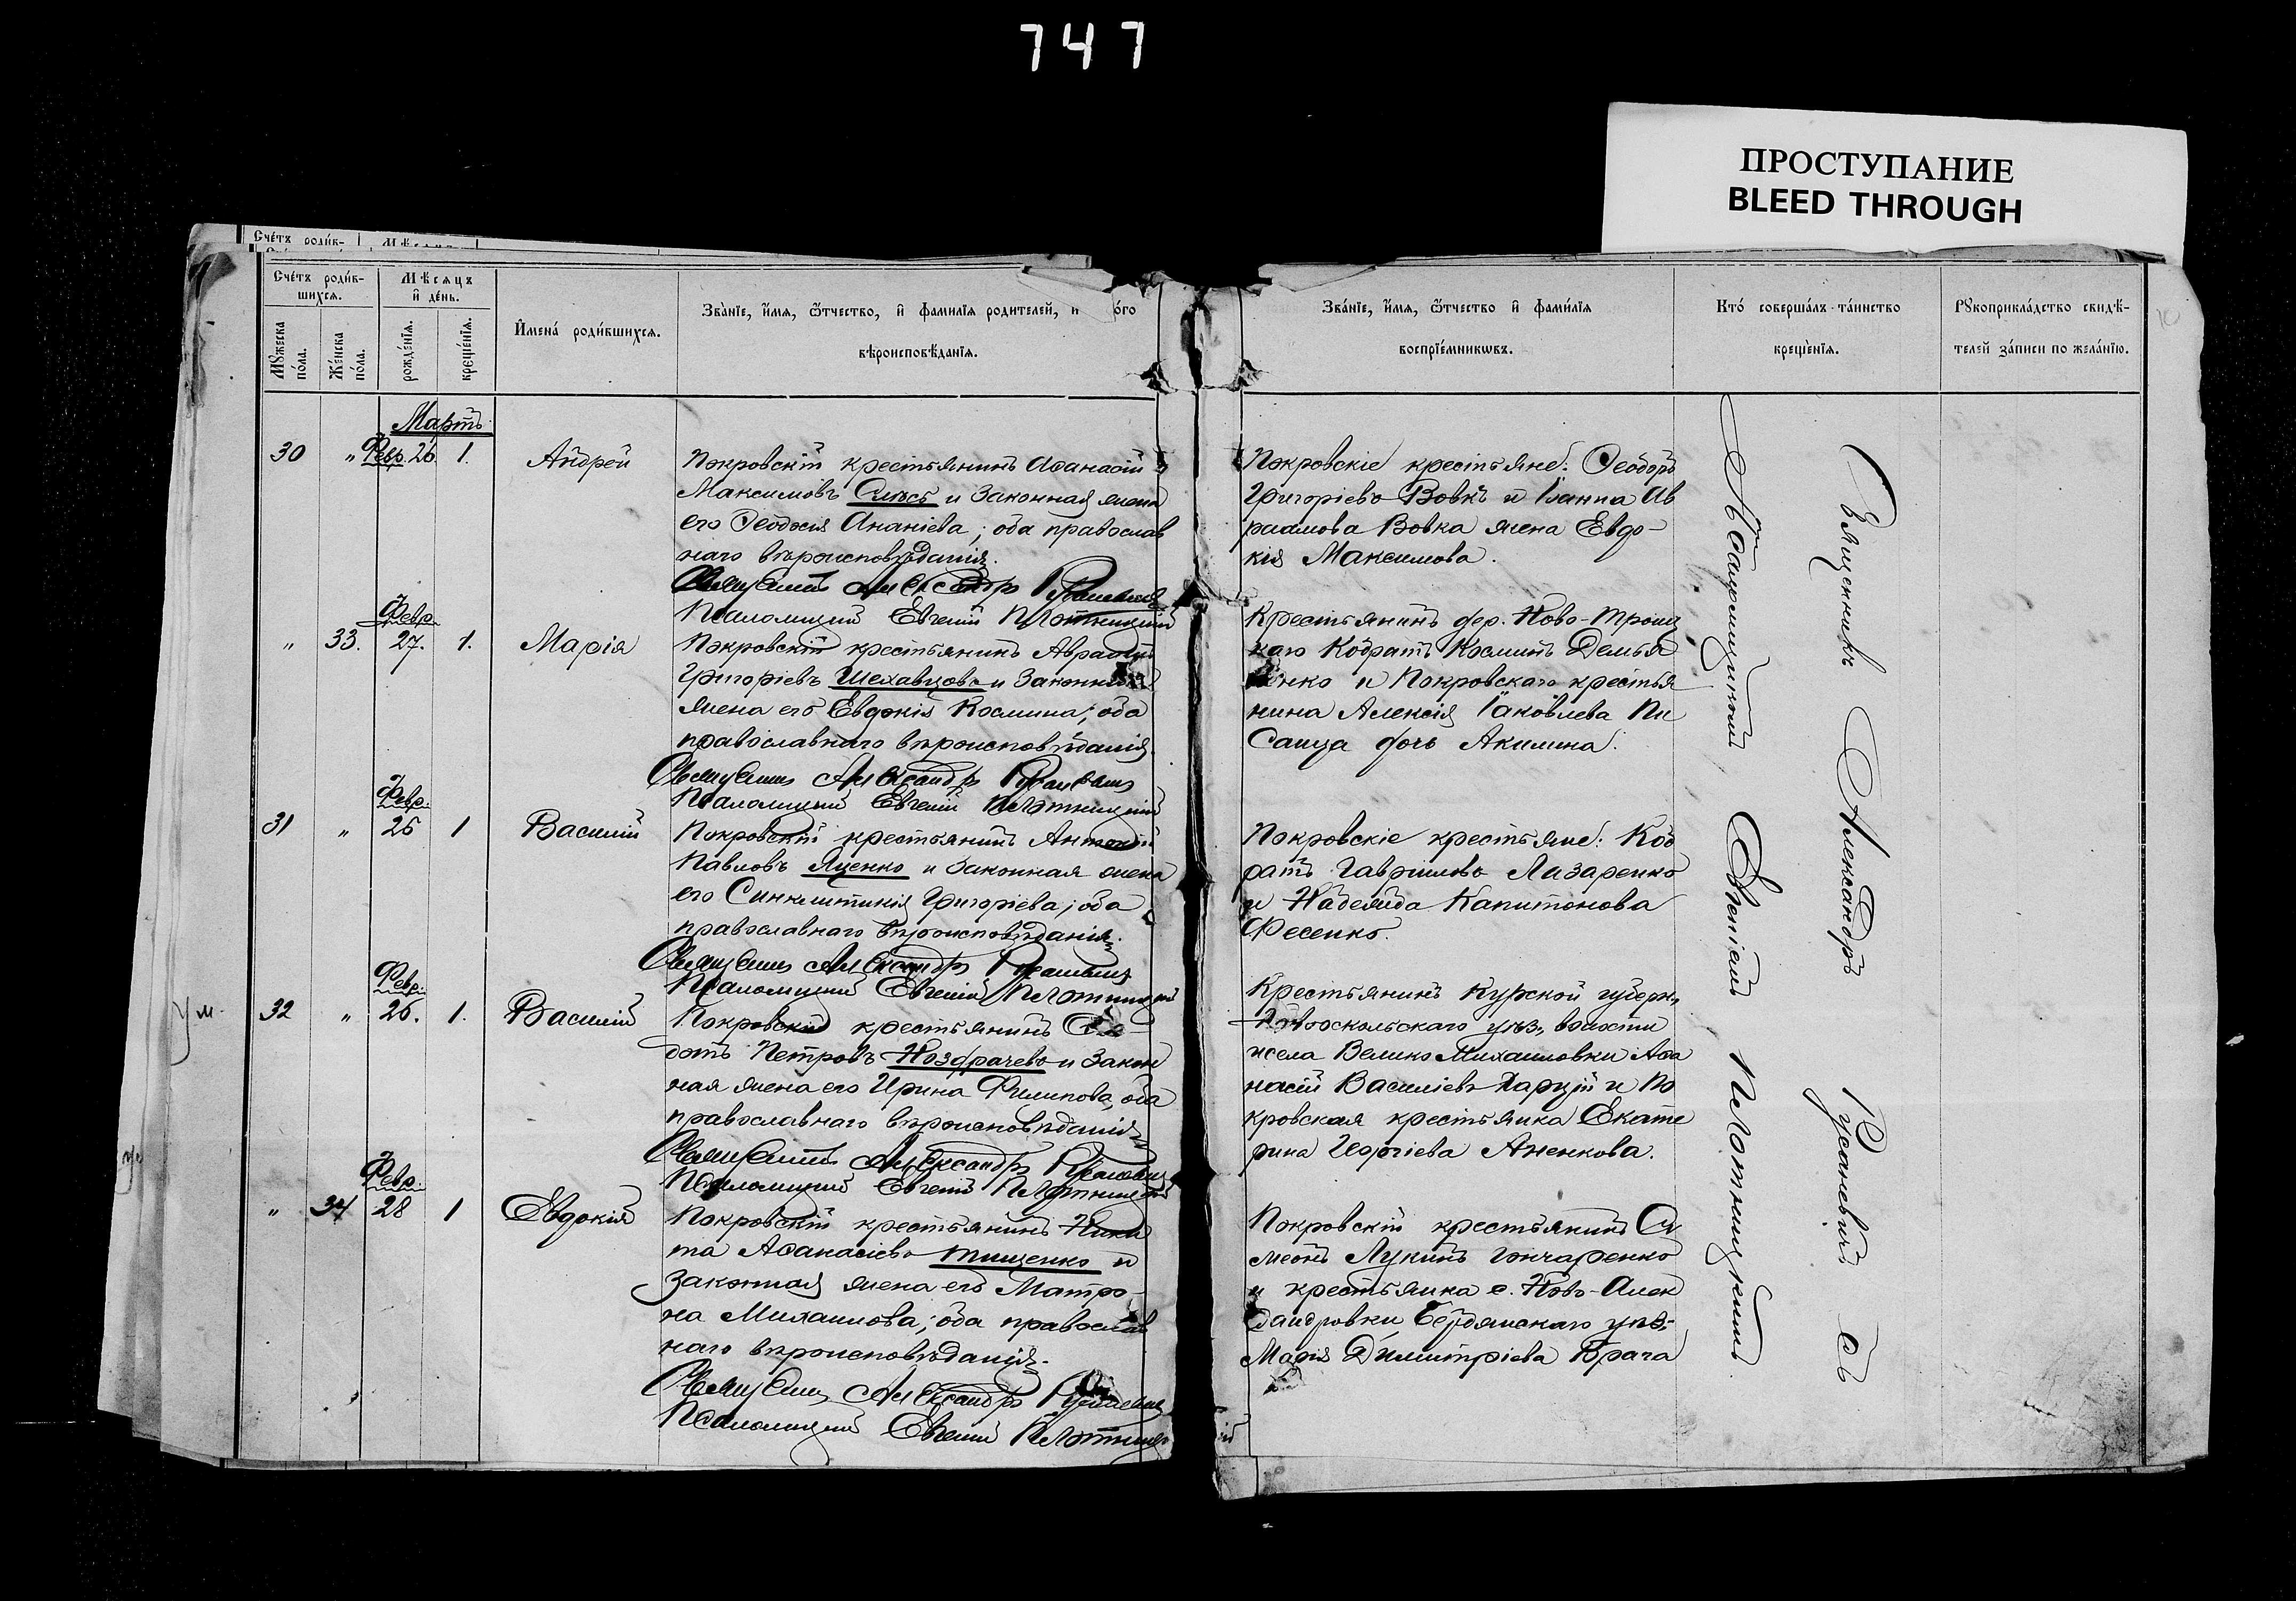 747
ПРОСТУПАНИЕ
BLEED THROUGH
Счéтъ роди́в-
Счéтъ роди́в-
шихся.
Мѣсяцъ
и҆ де́нь.
Мꙋ́жеска
по́ла.
Же́нска
по́ла.
рожде́нїѧ.
креще́нїѧ.
И҆мена́ роди́вшихся.
Зва́нїе, и҆́мѧ, ѻ҆́тчество, и҆ фами́лїѧ родителей, и
о́го
вѣроисповѣ́данїѧ.
Зва́нїе, и҆́мѧ, ѻ҆́тчество и҆ фами́лїѧ
воспрїе́мникωвъ.
Кто́ соверша́лъ та́инство
креще́нїѧ.
Рꙋкоприкла́дство свидѣ́-
телей за́писи по жела́нїю.
Мартъ
30 " Февр. 26. 1. Андрей
Покровскій крестьянинъ Аѳанасій
Максимовъ и законная жена
его Ѳеодосія Ананіева; оба православ
наго вѣроисповѣданія.
Священникъ Александръ Русаневичъ
Псаломщикъ Евгеній Плотницкій
Покровскіе крестьяне: Ѳеодоръ
Григорьевъ Вовкъ и Іоанна Ав
раамова Вовка жена Евдо-
кія Максимова.
Февр.
" 33. 27. 1. Марія
Покровскій крестьянинъ Авраамъ
Григоріевъ Шехавцовъ и законная
жена его Евдокія Космина; оба
православнаго вѣроисповѣданія.
Священникъ Александръ Русаневичъ
Псаломщикъ Евгеній Плотницкій
Крестьянинъ дер. Ново-Троиц
каго Кодратъ Косминъ Демья
ненко и Покровскаго крестья
нина Алексія Іаковлева Пи
санца дочь Акилина.
Февр.
31 " 26 1 Василій
Покровскій крестьянинъ Антоній
Павловъ Яценко и законная жена
его Синклитикія Григоріева; оба
православнаго вѣроисповѣданія.
Священникъ Александръ Русаневичъ
Псаломщикъ Евгеній Плотницкій
Покровскіе крестьяне: Код
ратъ Гавріиловъ Лазаренко
и Надежда Капитонова
Фесенко.
Февр.
ум. 32 " 26. 1. Василій
Покровскій крестьянинъ Ѳео
дотъ Петровъ Ноздрачевъ и закон
ная жена его Ирина Филипова, оба
православнаго вѣроисповѣданія.
Священникъ Александръ Русаневичъ
Псаломщикъ Евгеній Плотницкій
Крестьянинъ Курской губерн.
Новооскольскаго уѣз. волости
и села Велико Михаиловки Аѳа
насій Василіевъ и По
кровская крестьянка Екате
рина Георгіева Аненкова.
Февр.
" 34 28 1 Евдокія
Покровскій крестьянинъ Ники
та Аѳанасіевъ Тищенко и
законная жена его Матро-
на Михаилова; оба православ
наго вѣроисповѣданія.
Священникъ Александръ Русаневичъ
Псаломщикъ Евгеній Плотницкій
Покровскій крестьянинъ Си
меонъ Лукинъ Гончаренко
и крестьянка с. Ново-Алек
сандровки Бердянскаго уѣз.
Марія Димитріева Врача
Священникъ Александръ Русаневичъ съ
Псаломщикомъ Евгеніемъ Плотницкимъ